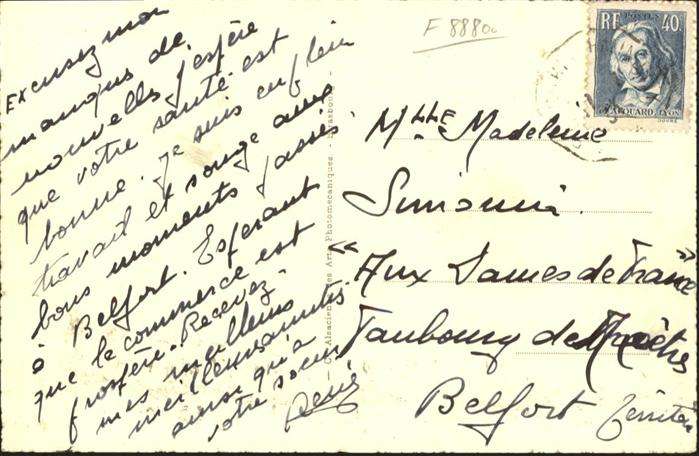 Excusez mon
manque de
nouvelles j'espère
que votre santé est
bonne. Je suis en plein
travail et songe aux
bons moments passés
à Belfort. Espérant
que le commerce est
prospère. Recevez
mes meilleurs
ainsi qu'à
votre soeur
F 8880
POSTES
RF 40c
JACQUARD LYON
Alsacienne des Arts Photomécaniques
Mlle Madeleine
"Aux Dames de France"
Faubourg de
Belfort